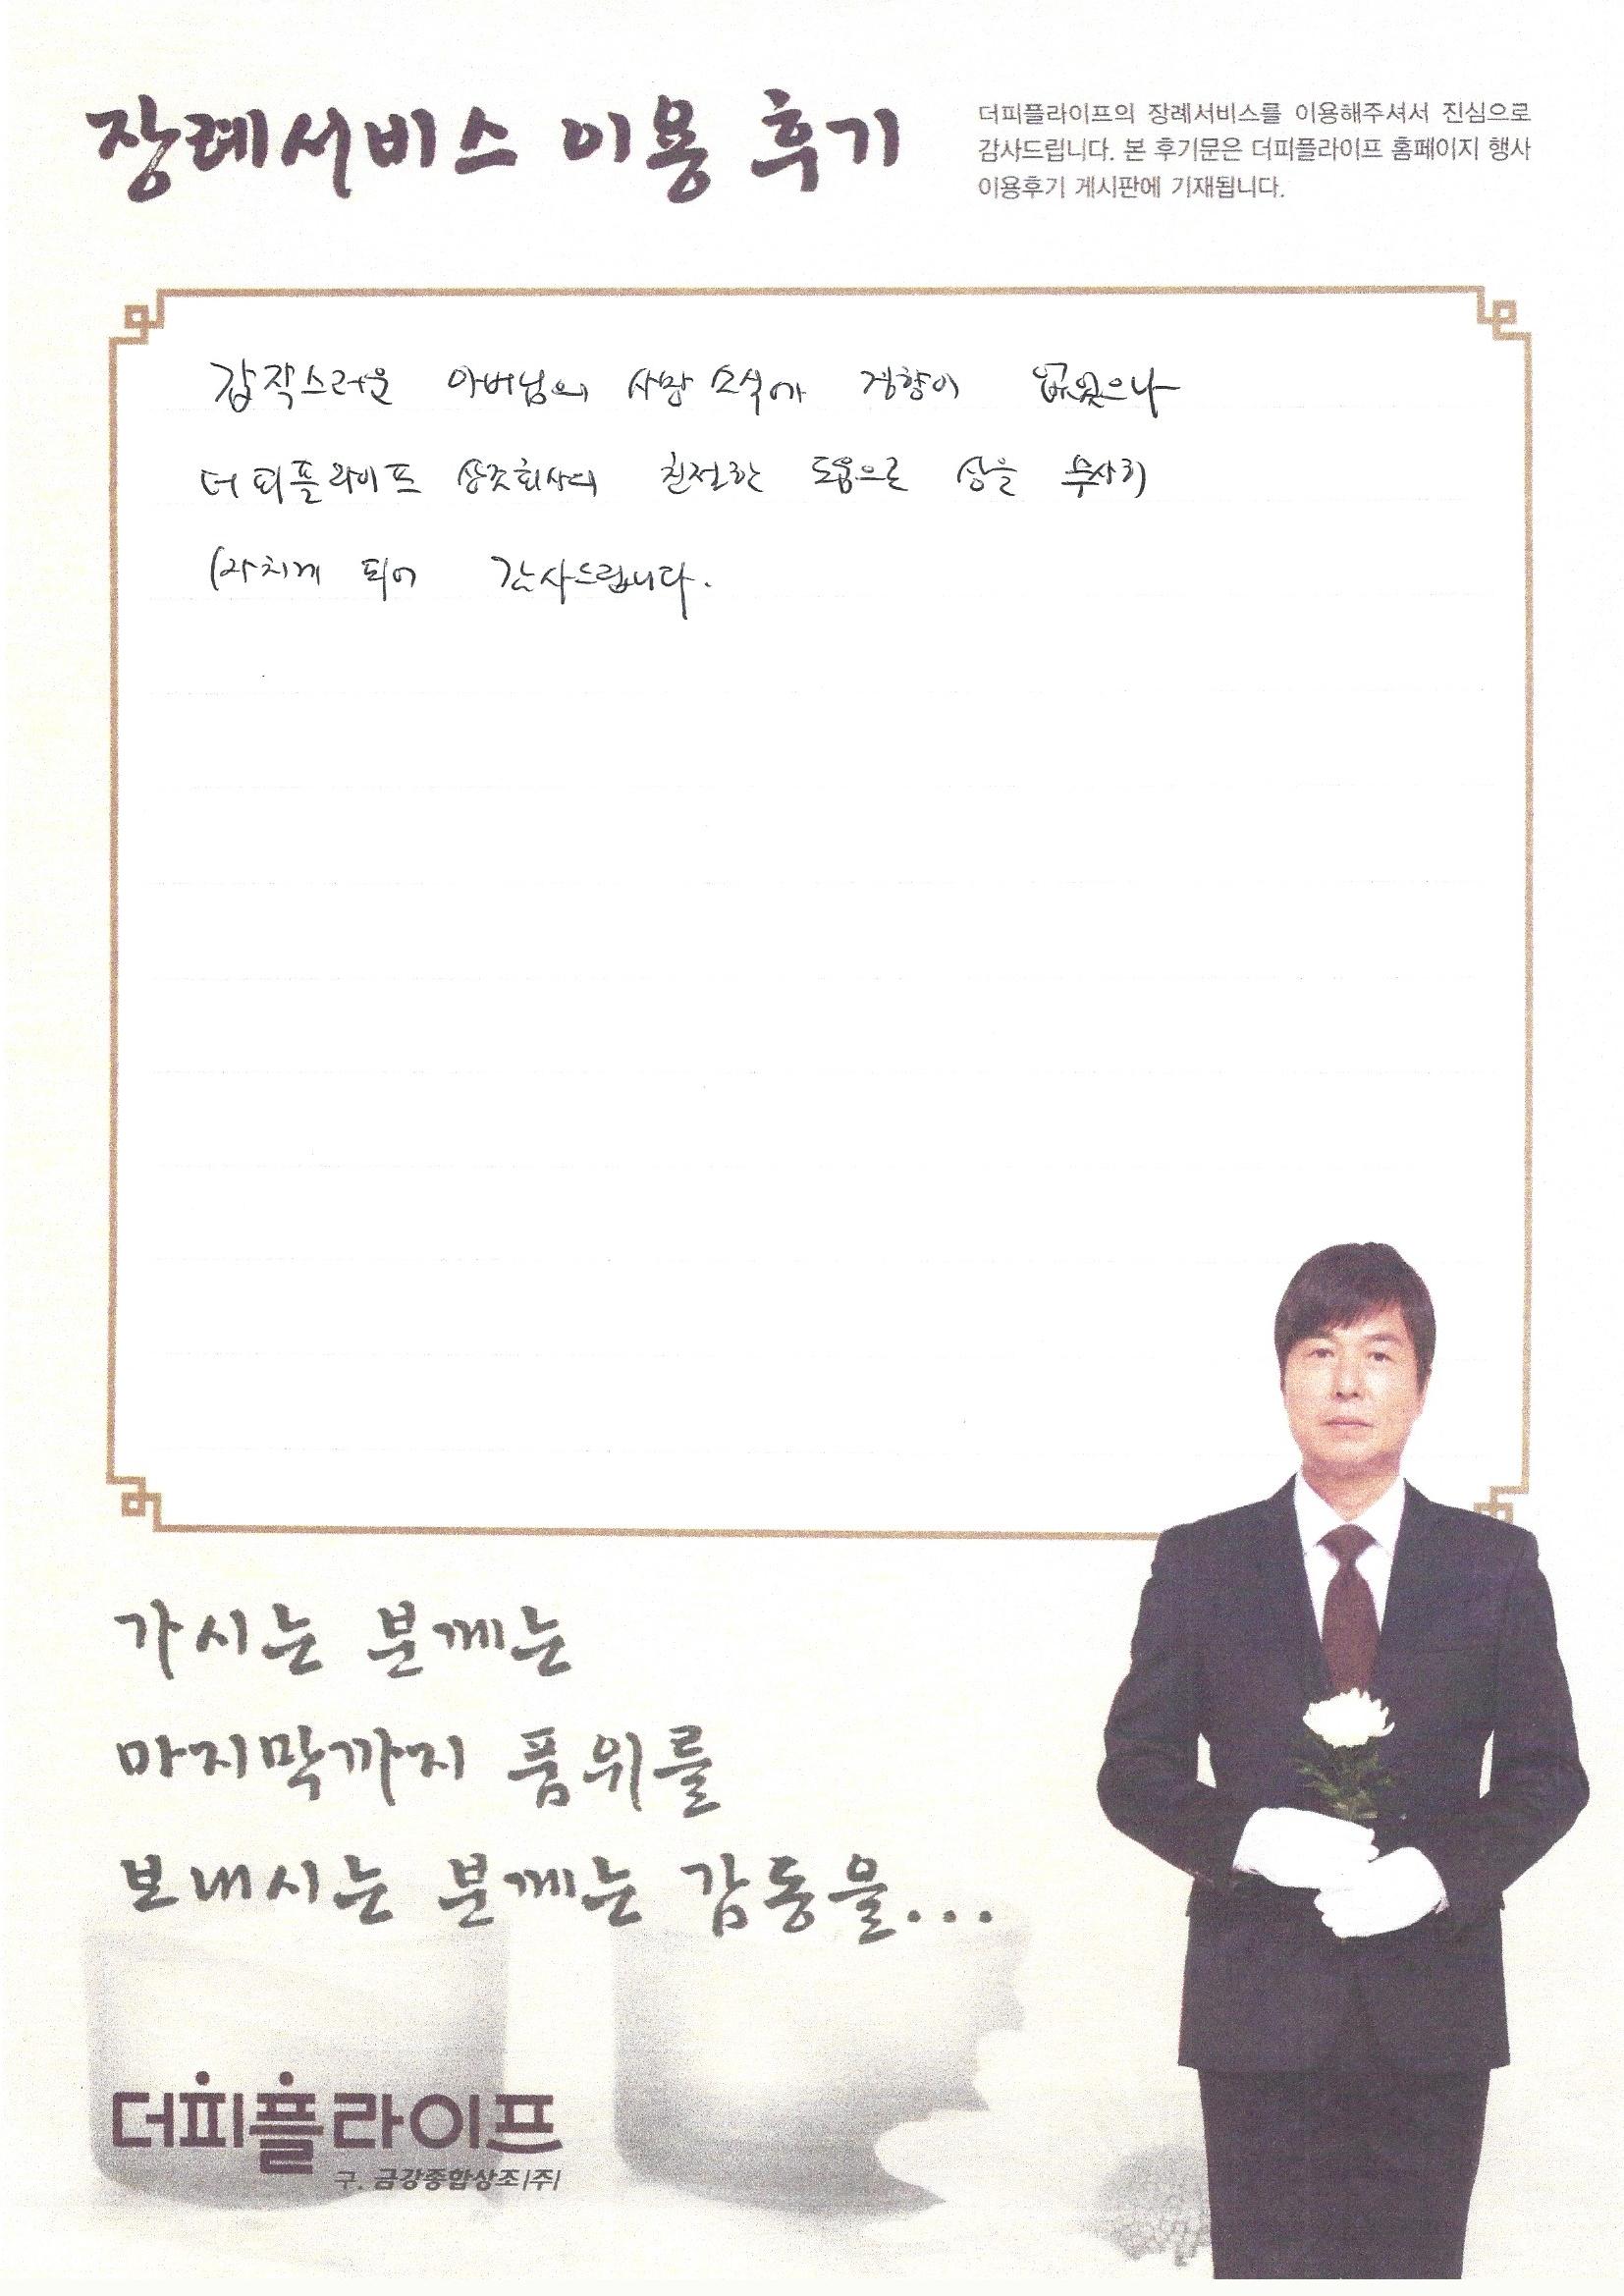 장례서비스 이용 후기
더피플라이프의 장례서비스를 이용해주셔서 진심으로
감사드립니다. 본 후기문은 더피플라이프 홈페이지 행사
이용후기 게시판에 기재됩니다.
갑작스러운 아버님의 사망 소식에 경향이 없었으나
더피플라이프 상조회사의 친절한 도움으로 상을 무사히
마치게 되어 감사드립니다.
가시는 분께는
마지막까지 품위를
보내시는 분께는 감동을...
더피플라이프
구. 금강종합상조(주)